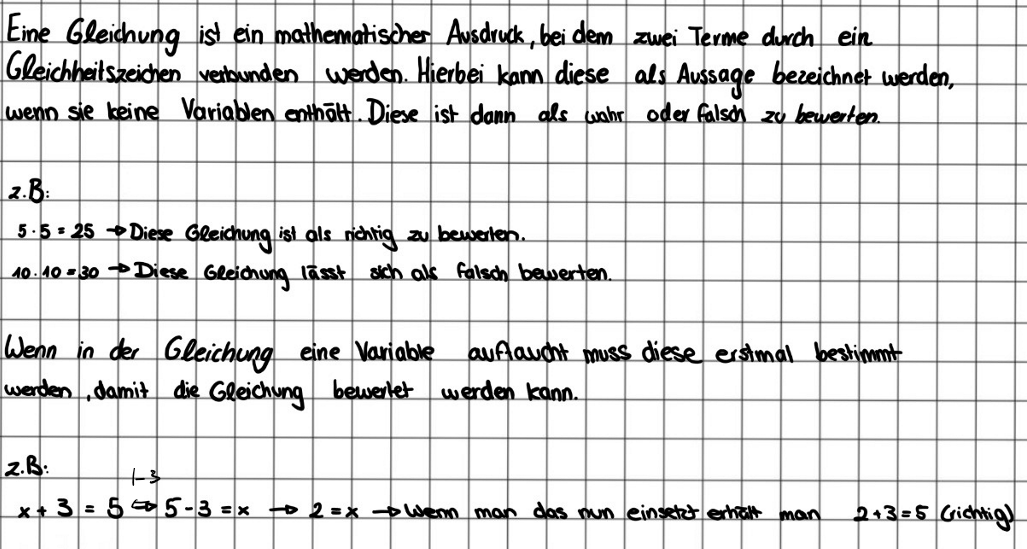 Eine Gleichung ist ein mathematischer Ausdruck, bei dem zwei Terme durch ein
Gleichheitszeichen verbunden werden. Hierbei kann diese als Aussage bezeichnet werden,
wenn sie keine Variablen enthält. Diese ist dann als wahr oder falsch zu bewerten.
z.B:
5·5=25 → Diese Gleichung ist als richtig zu bewerten.
10·10=30 → Diese Gleichung lässt sich als falsch bewerten.
Wenn in der Gleichung eine Variable auftaucht muss diese erstmal bestimmt
werden, damit die Gleichung bewertet werden kann.
z.B:
|-3
x+3=5 ⇔ 5-3=x → 2=x → Wenn man das nun einsetzt erhält man 2+3=5 (richtig)